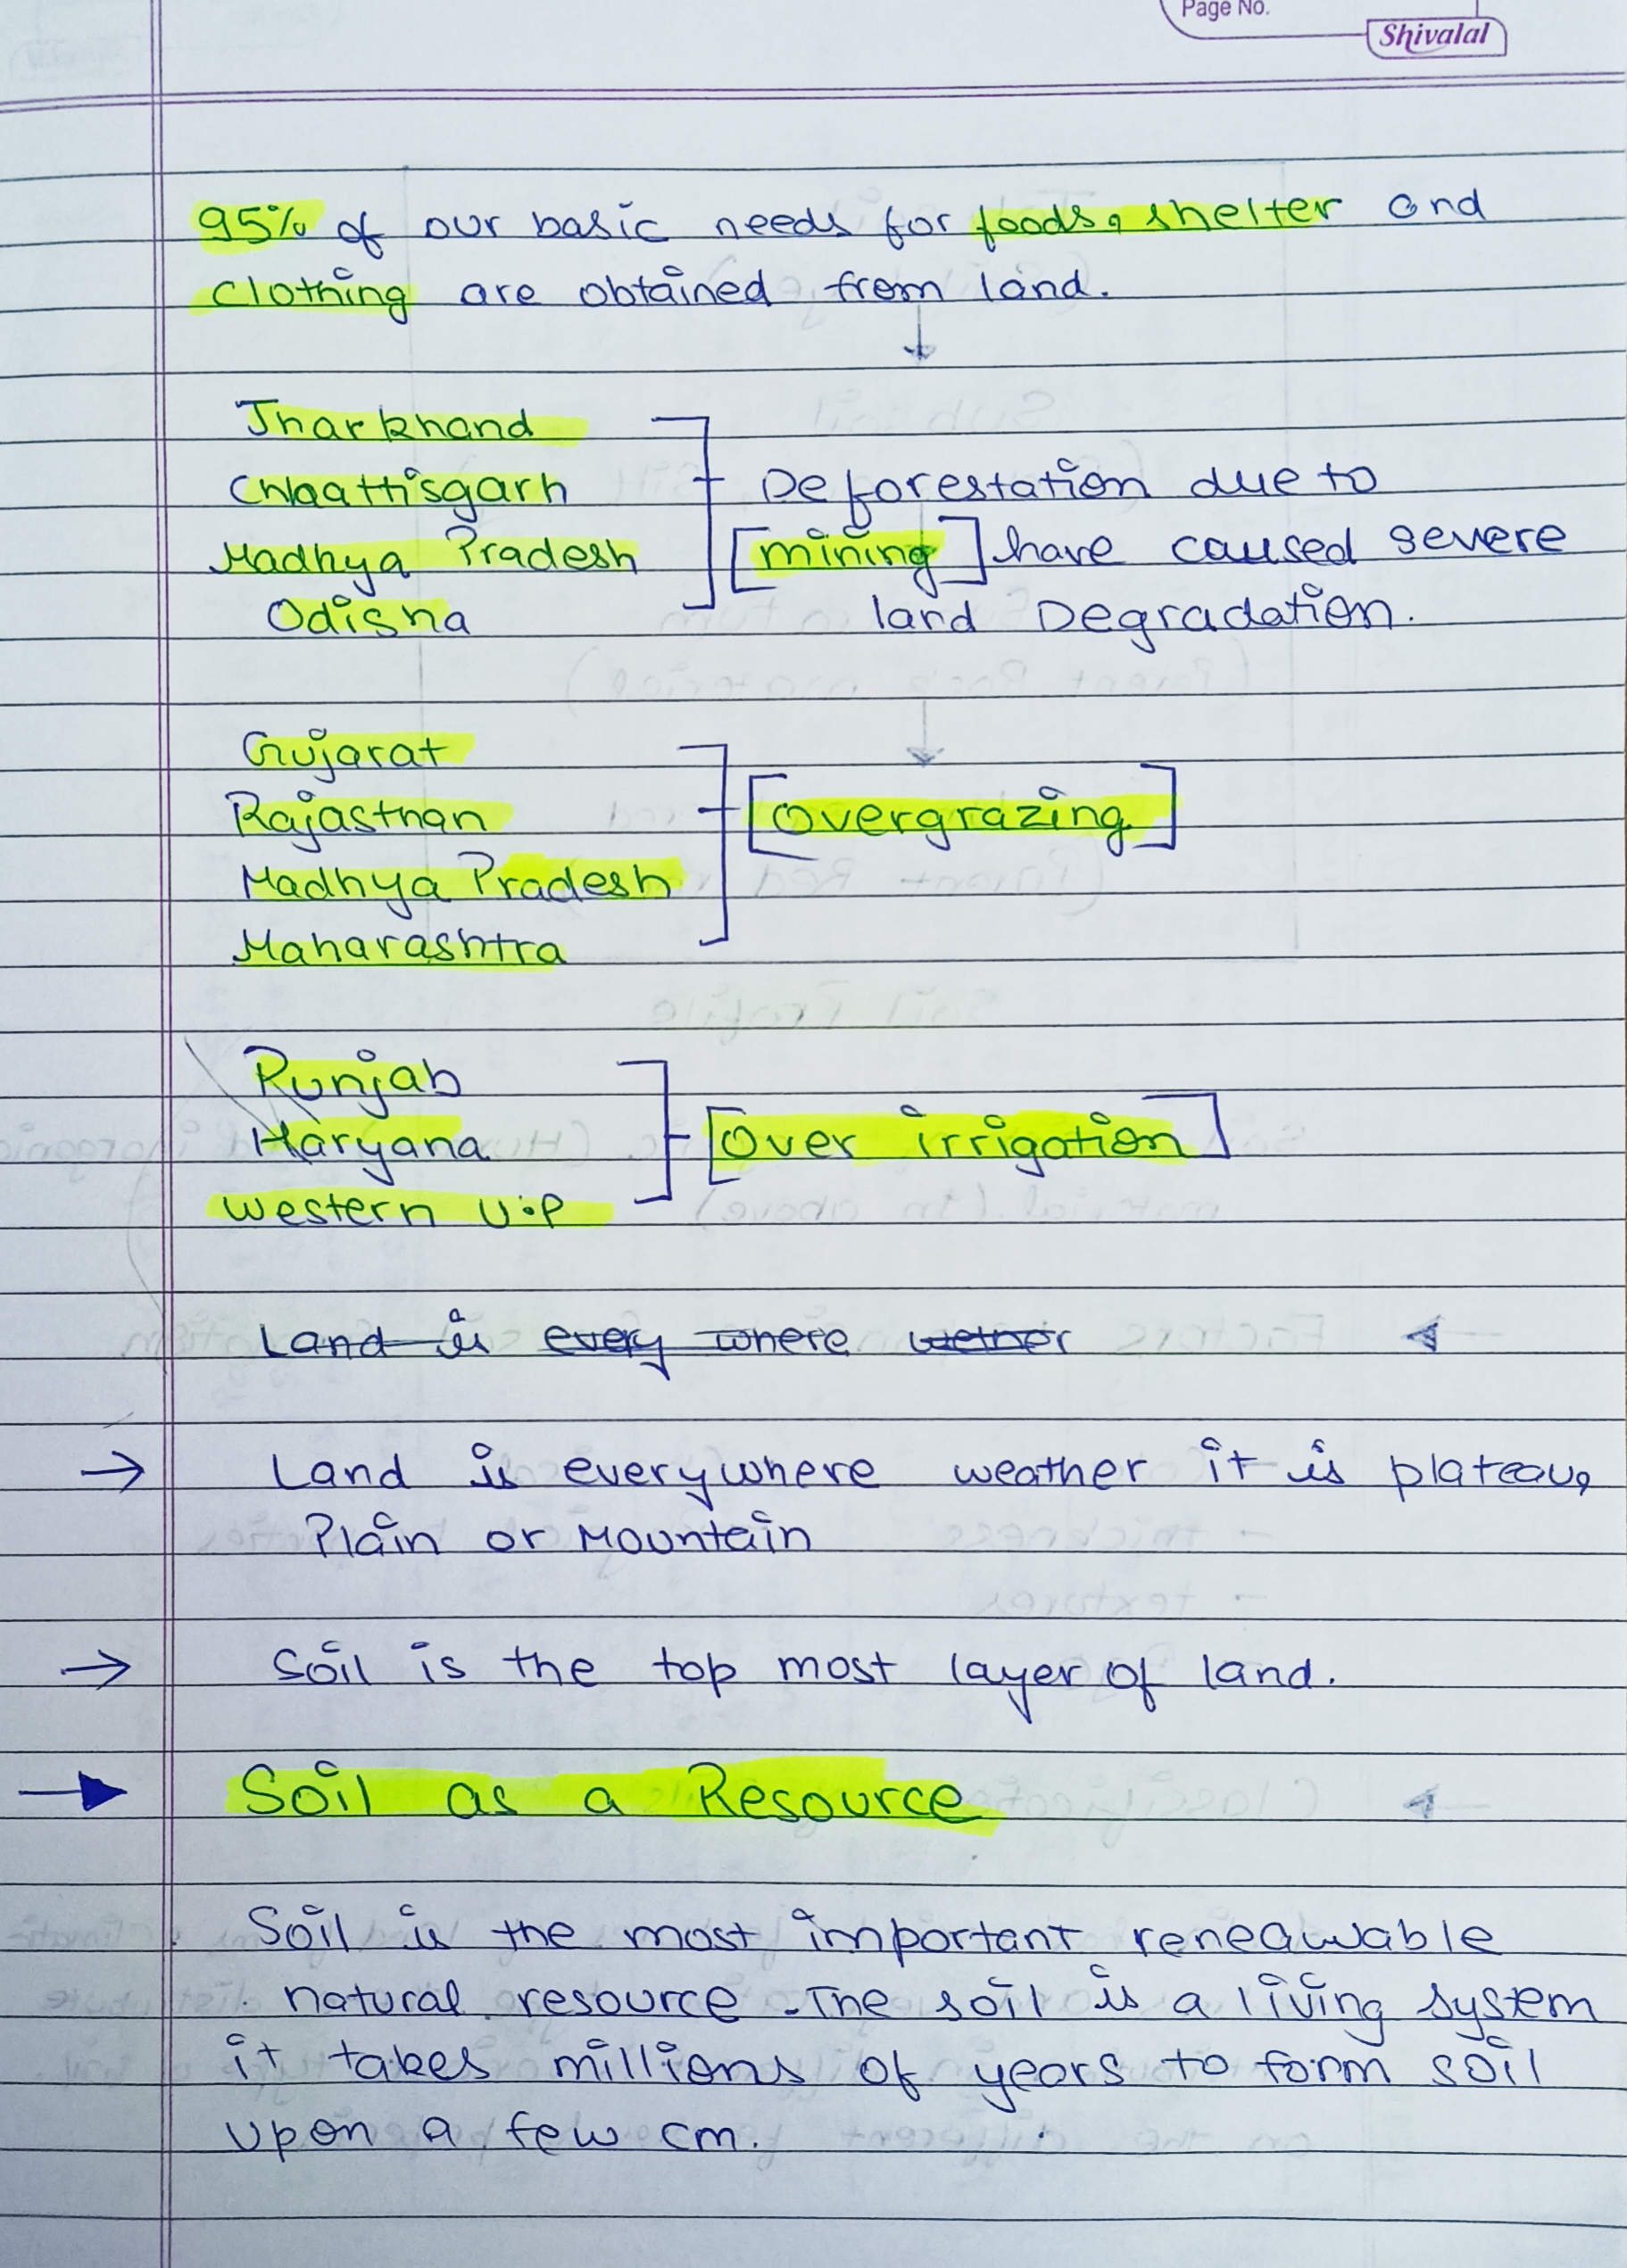 Page No.
Shivalal
95% of our basic needs for foods, shelter and
clothing are obtained from land.
Jharkhand
Chhattisgarh
Deforestation due to
Madhya Pradesh
[mining] have caused severe
Odisha
land Degradation.
Gujarat
Rajasthan
[Overgrazing]
Madhya Pradesh
Maharashtra
Punjab
Haryana
[Over irrigation]
Western U.P
Land is every where wether
→ Land is everywhere weather it is plateau,
Plain or Mountain
→ Soil is the top most layer of land.
→ Soil as a Resource
Soil is the most important reneawable
natural resource. The soil is a living system
it takes millions of years to form soil
upon a few cm.